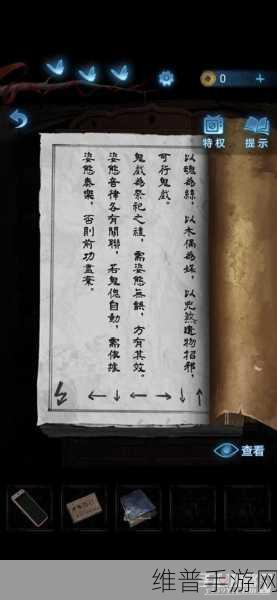 0
特权
提示
以魂為絲，以木偶為媒，以兇煞遺物招邪，
可行鬼戲。
鬼戲為祭祀之禮，需姿態無誤，方有其效。
姿態音律各有關聯，若鬼傀自動，需依據
姿態奏樂，否則前功盡棄。
← ↓ ← → ↓ ↑
查看
维普手游网